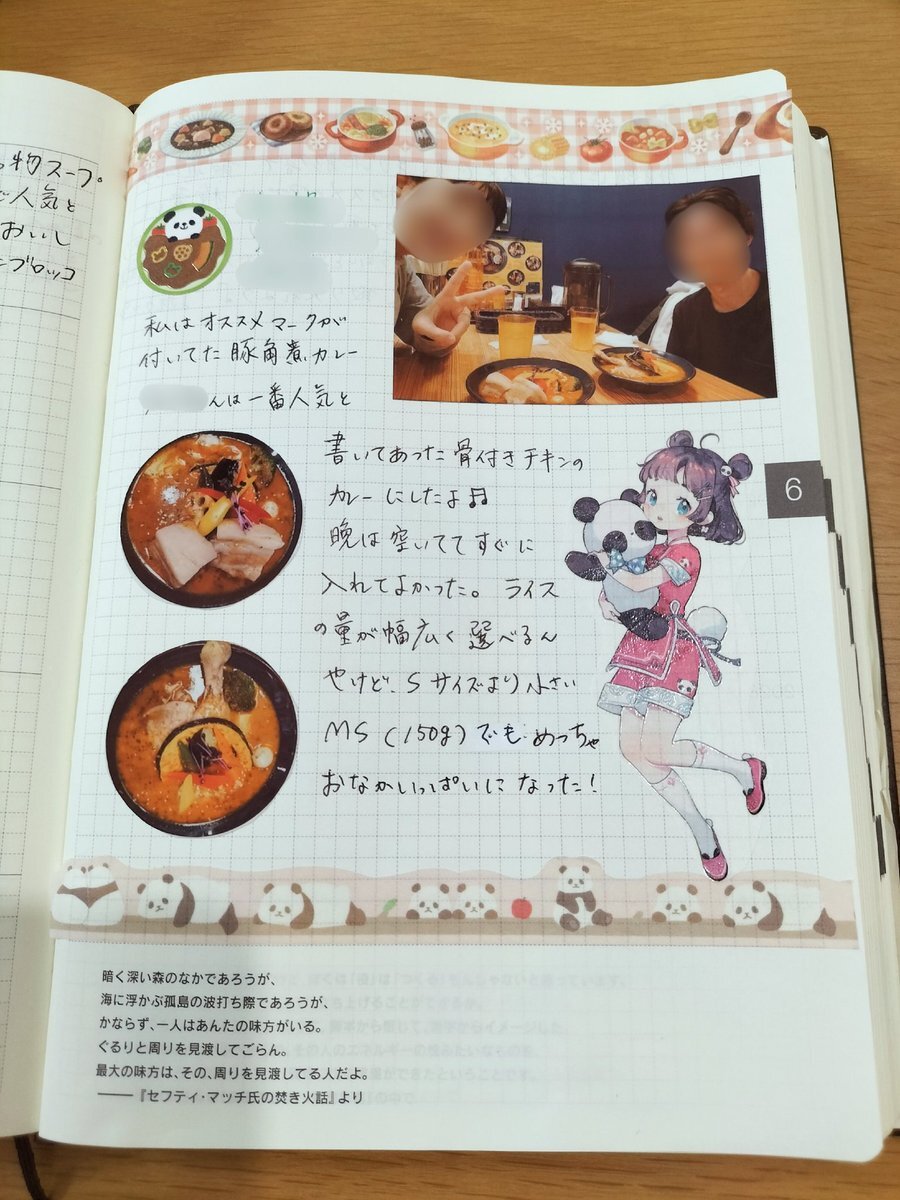 物スープ。
人気と
おいし
ブロッコ
私はオススメマークが
付いてた豚角煮カレー
んは一番人気と
書いてあった骨付きチキンの
カレーにしたよ♬
晩は空いててすぐに
入れてよかった。ライス
の量が幅広く選べるん
やけど、Sサイズより小さい
MS(150g)でもめっちゃ
おなかいっぱいになった!
6
暗く深い森のなかであろうが、
海に浮かぶ孤島の波打ち際であろうが、
かならず、一人はあんたの味方がいる。
ぐるりと周りを見渡してごらん。
最大の味方は、その、周りを見渡してる人だよ。
――『セフティ・マッチ氏の焚き火話』より